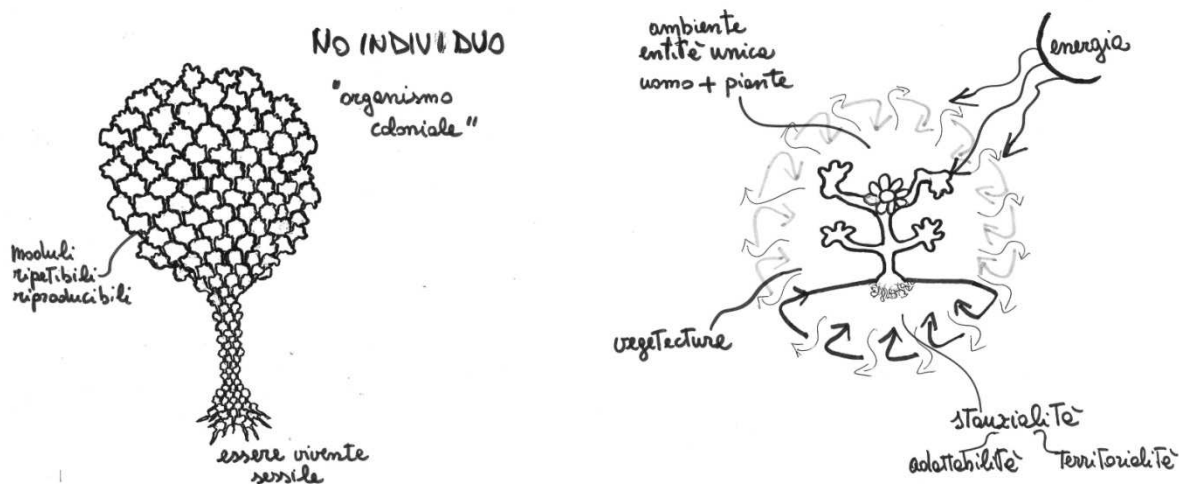 NO INDIVIDUO
"organismo
coloniale"
moduli
ripetibili
riproducibili
essere vivente
sessile
ambiente
entità unica
uomo + piante
energia
vegetecture
stanzialità
adattabilità
territorialità